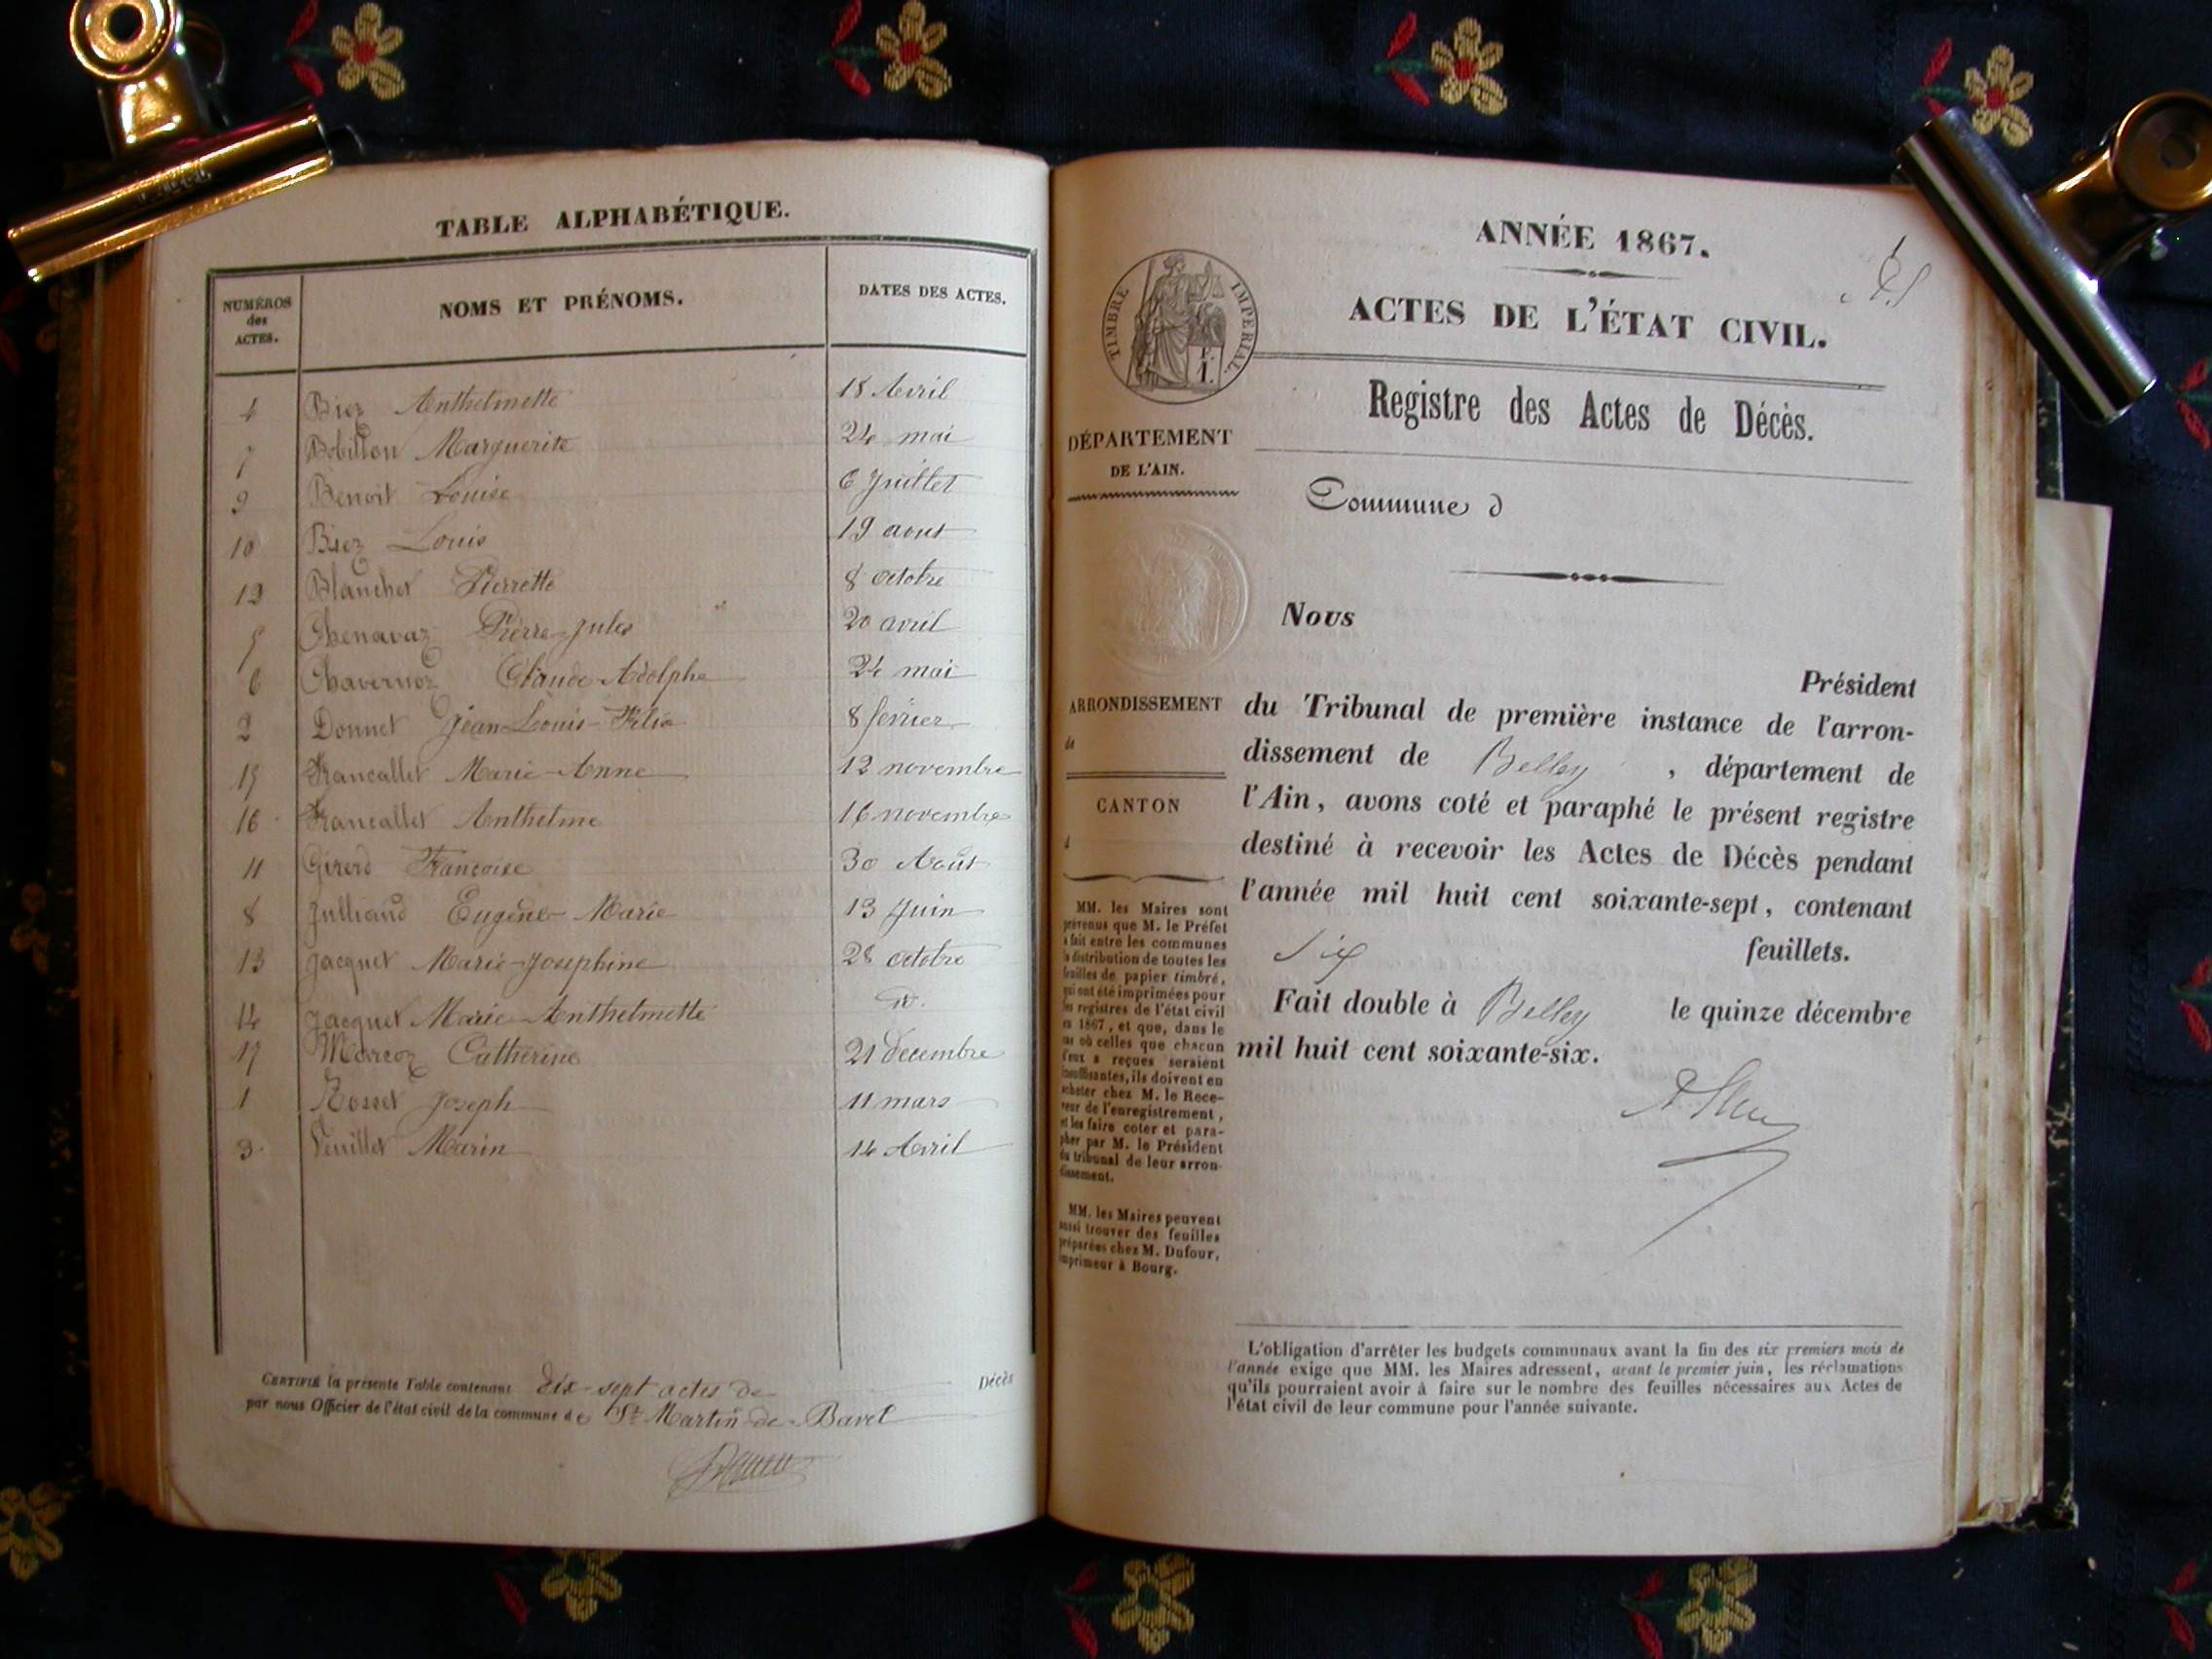 TABLE ALPHABÉTIQUE.
NUMÉROS
des
ACTES.
NOMS ET PRÉNOMS.
DATES DES ACTES.
4 Biez Anthelmette 18 Avril
7 Bobillon Marguerite 24 mai
9 Benoit Louise 6 Juillet
10 Biez Louis 19 aout
12 Blanchet Pierrette 8 octobre
5 Chenavaz Pierre-Jules 20 avril
6 Chavernoz Claude-Adolphe 24 mai
2 Donnet Jean-Louis-Félix 8 février
15 Francallet Marie-Anne 12 novembre
16 Francallet Anthelme 16 novembre
11 Girerd Françoise 30 Août
8 Julliand Eugène-Marie 13 Juin
13 Jacquet Marie-Josephine 28 octobre
14 Jacquet Marie-Anthelmette d°.
17 Marcoz Catherine 21 décembre
1 Rosset Joseph 11 mars
3 Veuillet Marin 14 Avril
CERTIFIÉ la présente Table contenant dix-sept actes de Décès
par nous Officier de l'état civil de la commune de St Martin-de-Bavel
ANNÉE 1867.
ACTES DE L'ÉTAT CIVIL.
TIMBRE IMPERIAL
Registre des Actes de Décès.
DÉPARTEMENT
DE L'AIN.
Commune d
Nous
Président
ARRONDISSEMENT
de
CANTON
d
du Tribunal de première instance de l'arron-
dissement de Belley , département de
l'Ain, avons coté et paraphé le présent registre
destiné à recevoir les Actes de Décès pendant
l'année mil huit cent soixante-sept, contenant
six feuillets.
Fait double à Belley le quinze décembre
mil huit cent soixante-six.
MM. les Maires sont
prévenus que M. le Préfet
a fait entre les communes
la distribution de toutes les
feuilles de papier timbré,
qui ont été imprimées pour
les registres de l'état civil
en 1867, et que, dans le
cas où celles que chacun
d'eux a reçues seraient
insuffisantes, ils doivent en
acheter chez M. le Rece-
veur de l'enregistrement,
et les faire coter et para-
pher par M. le Président
du tribunal de leur arron-
dissement.
MM. les Maires peuvent
aussi trouver des feuilles
préparées chez M. Dufour,
imprimeur à Bourg.
L'obligation d'arrêter les budgets communaux avant la fin des six premiers mois de
l'année exige que MM. les Maires adressent, avant le premier juin, les réclamations
qu'ils pourraient avoir à faire sur le nombre des feuilles nécessaires aux Actes de
l'état civil de leur commune pour l'année suivante.